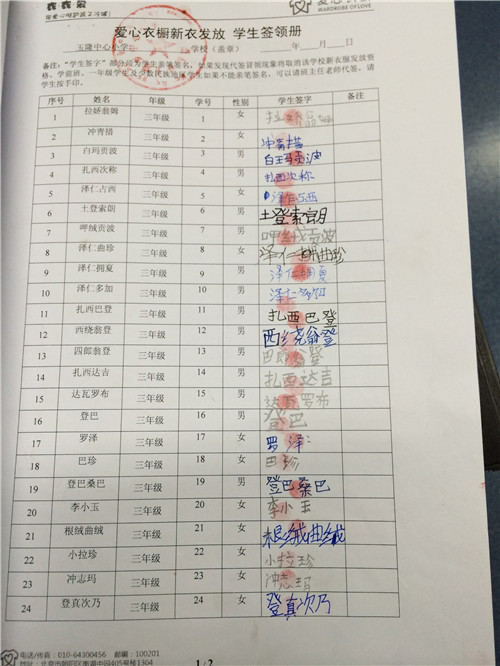 爱心衣橱
WARDROBE OF LOVE
爱心衣橱新衣发放 学生签领册
玉隆中心小学 学校(盖章) 年 月 日
备注:"学生签字"部分须为学生亲笔签名,如果发现代签冒领现象将取消该学校新衣服发放资
格。学前班、一年级学生及少数民族地区学生如果不能亲笔签名,可以请班主任老师代签,请
学生按手印。
序号 姓名 年级 学号 性别 学生签字 备注
1 拉娇翁姆 三年级 1 女
2 冲青措 三年级 2 女 冲青措
3 白玛贡波 三年级 3 男 白玛贡波
4 扎西次称 三年级 4 男 扎西次称
5 泽仁占西 三年级 5 女 泽仁占西
6 土登索朗 三年级 6 男 土登索朗
7 呷绒贡波 三年级 7 男 呷绒贡波
8 泽仁曲珍 三年级 8 女 泽仁曲珍
9 泽仁拥夏 三年级 9 男 泽仁拥夏
10 泽仁多加 三年级 10 男 泽仁多加
11 扎西巴登 三年级 11 男 扎西巴登
12 西绕翁登 三年级 12 男 西绕翁登
13 四郎翁登 三年级 13 男 巴郎翁登
14 扎西达吉 三年级 14 男 扎西达吉
15 达瓦罗布 三年级 15 男 达瓦罗布
16 登巴 三年级 16 男 登巴
17 罗泽 三年级 17 女 罗泽
18 巴珍 三年级 18 女 巴珍
19 登巴桑巴 三年级 19 男 登巴桑巴
20 李小玉 三年级 20 女 李小玉
21 根绒曲绒 三年级 21 女 根绒曲绒
22 小拉珍 三年级 22 女 小拉珍
23 冲志玛 三年级 23 女 冲志玛
24 登真次乃 三年级 24 女 登真次乃
电话/传真:010-64300456 邮编:100201
地址:北京市朝阳区南湖中园405号楼1304
1 / 2